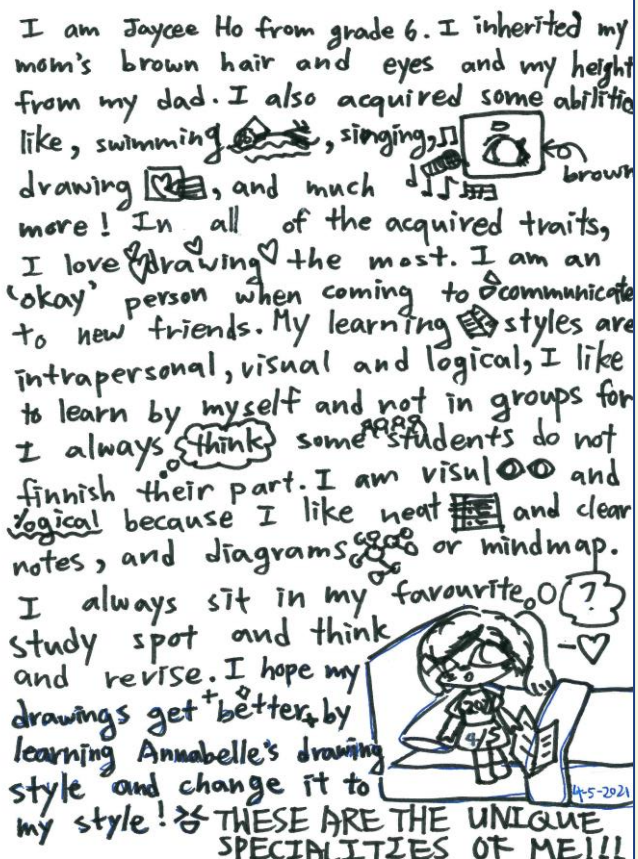 I am Jaycee Ho from grade 6. I inherited my
mom's brown hair and eyes and my height
from my dad. I also acquired some abilitie
like, swimming, singing,
brown
drawing, and much
more! In all of the acquired traits,
I love drawing the most. I am an
'okay' person when coming to communicate
to new friends. My learning styles are
intrapersonal, visual and logical, I like
to learn by myself and not in groups for
I always think some students do not
finnish their part. I am visul and
logical because I like neat and clear
notes, and diagrams or mindmap.
I always sit in my favourite
?
study spot and think
and revise. I hope my
drawings get better by
learning Annabelle's drawing
style and change it to
my style!
4/5
4-5-2021
THESE ARE THE UNIQUE
SPECIALITIES OF ME!!!